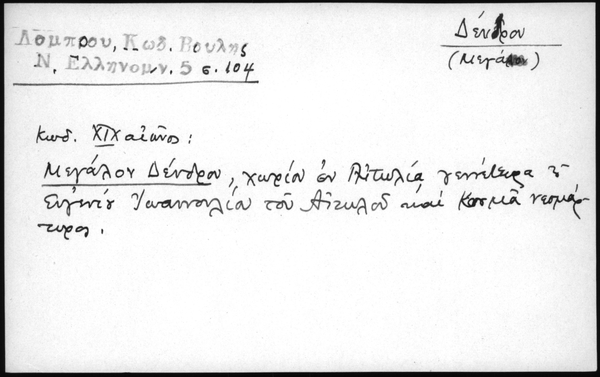 Λάμπρου, Κωδ. Βουλής
Ν. Ελληνομν. 5 σ. 104
Δένδρον
(Μεγα)
Κωδ. XIX αἰῶνος:
Μεγάλον Δένδρον, χωρίον ἐν Αἰτωλίᾳ γεννέτειρα τοῦ
Εὐγενίου Ἰωαννουλίου τοῦ Αἰτωλοῦ καὶ Κοσμᾶ νεομάρ-
τυρος.